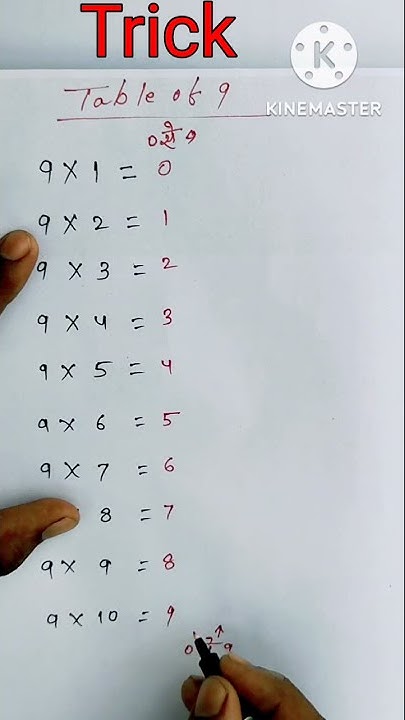 Trick
K
KINEMASTER
Table of 9
0 से 9
9 × 1 = 0
9 × 2 = 1
9 × 3 = 2
9 × 4 = 3
9 × 5 = 4
9 × 6 = 5
9 × 7 = 6
8 = 7
9 × 9 = 8
9 × 10 = 9
0
9